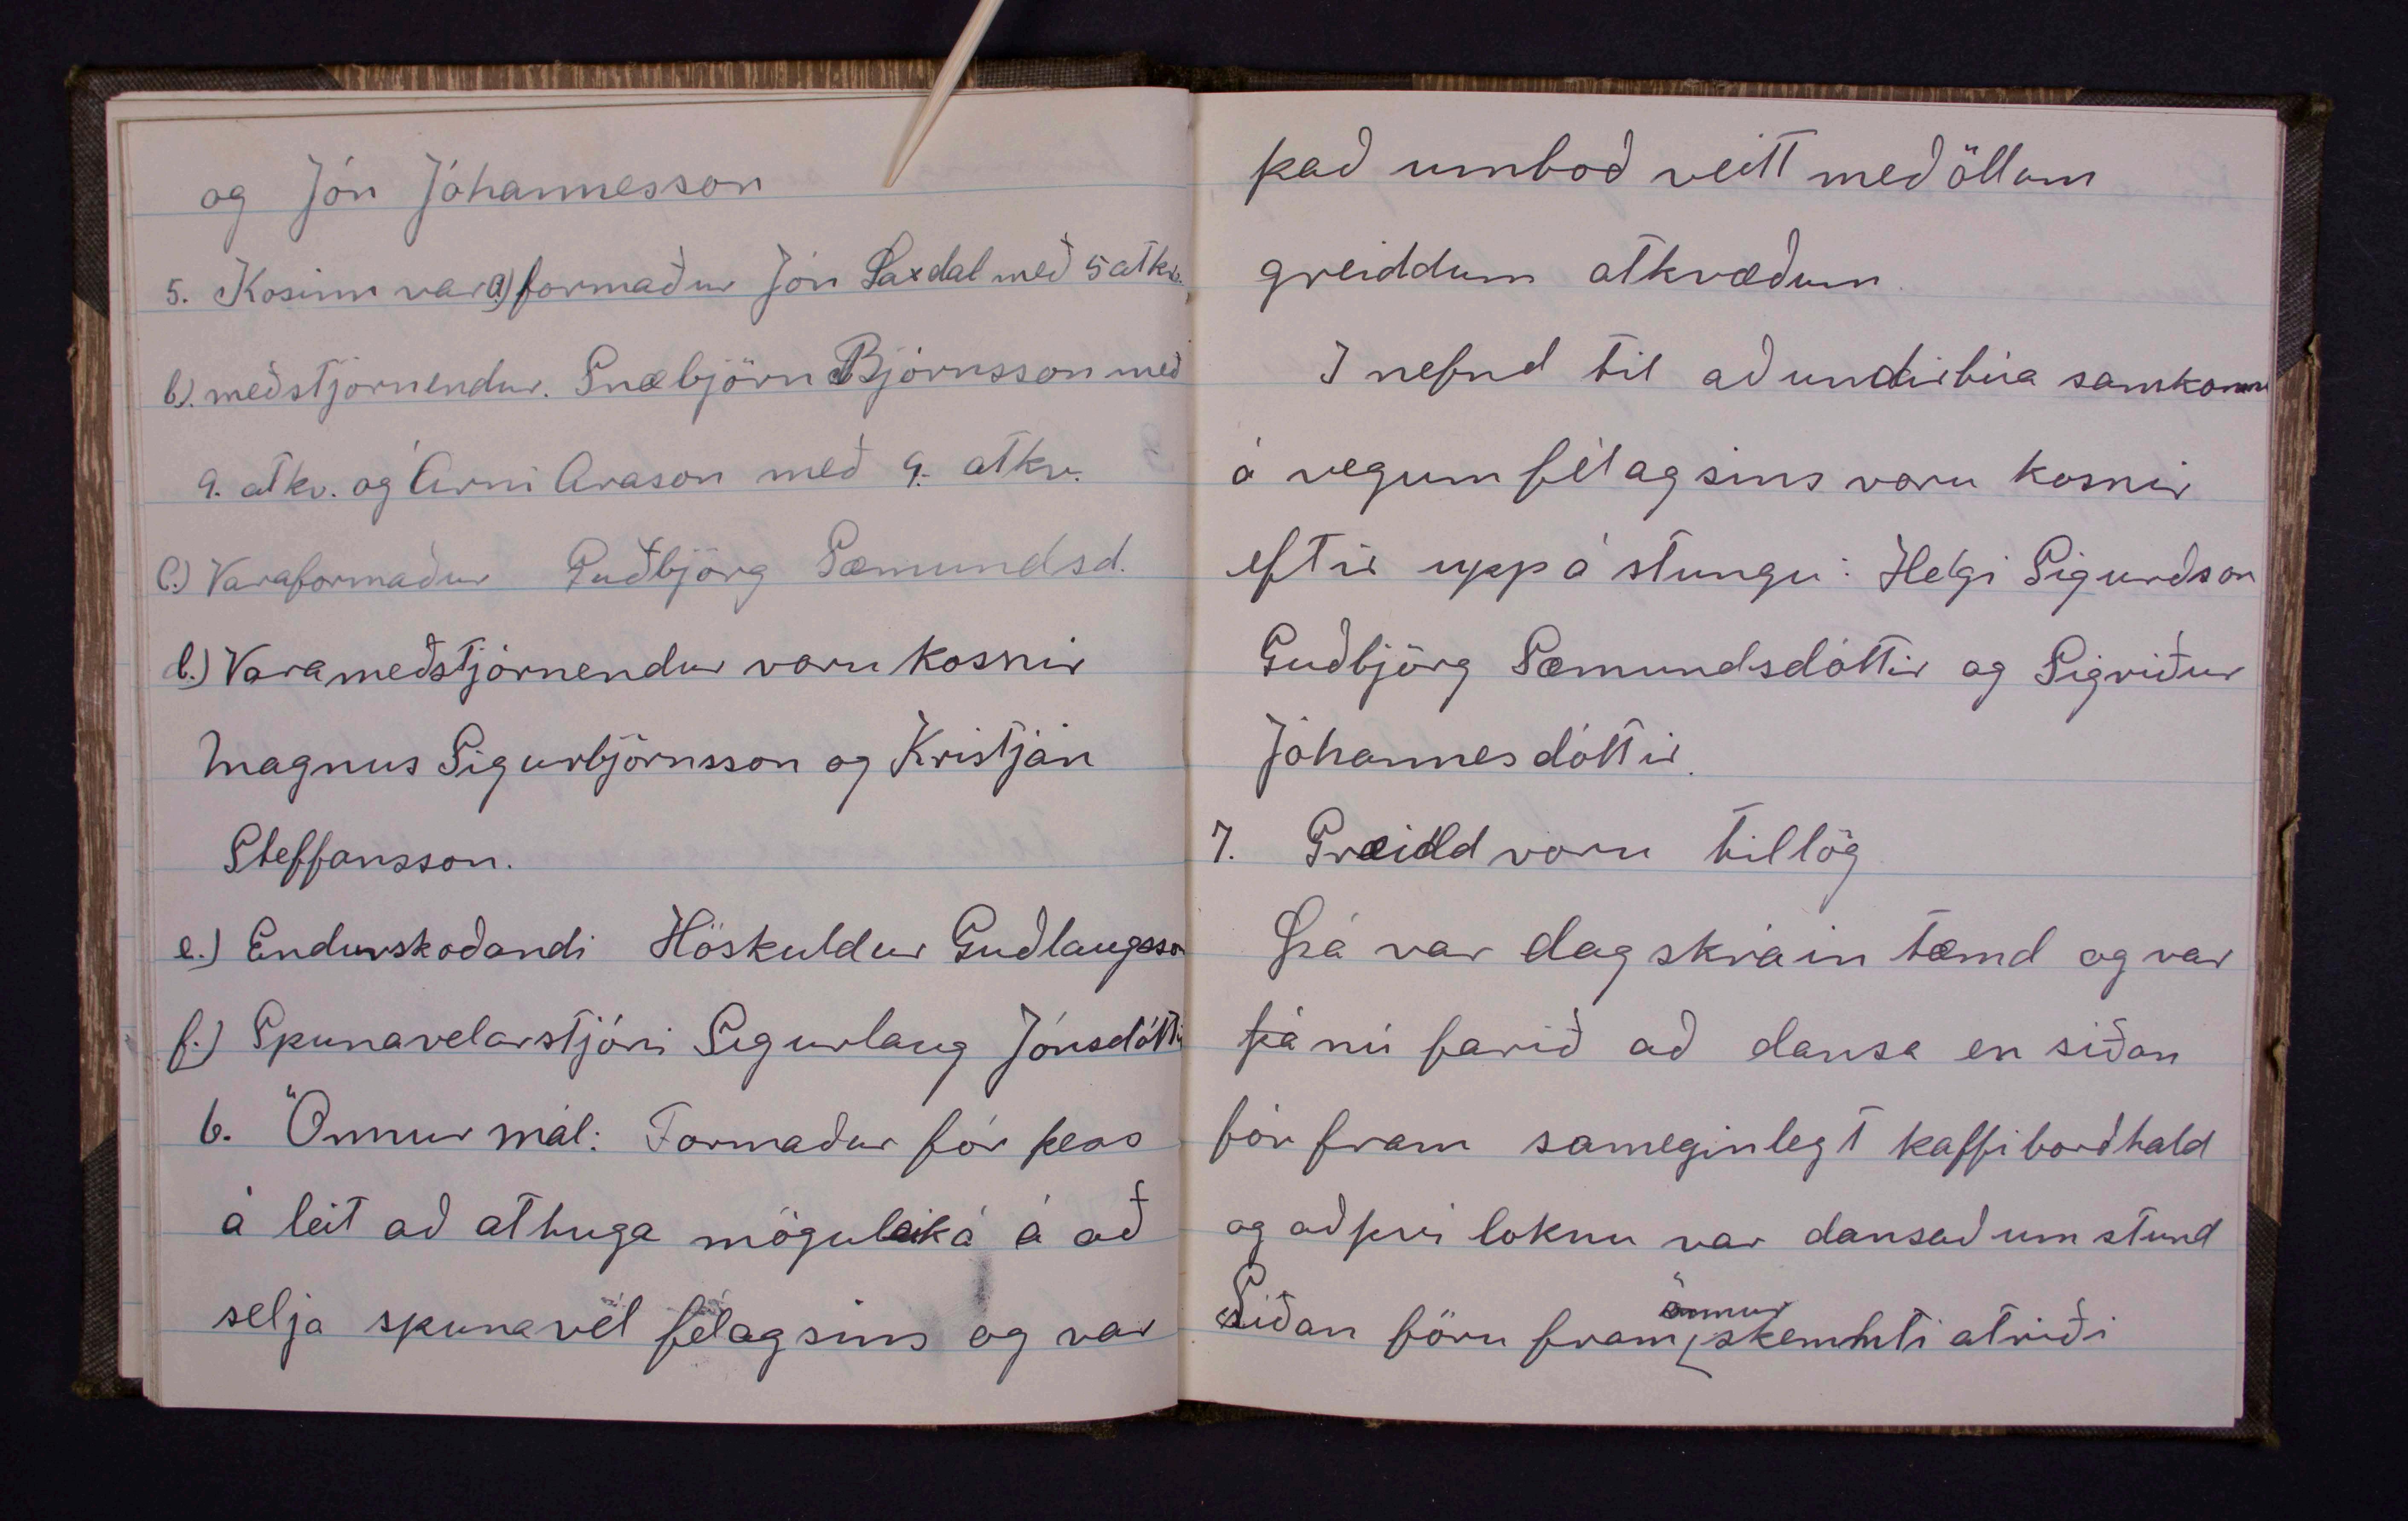 og Jón Jóhannesson
5. Kosinn var a) formaður Jón Saxdal með 5 atkv.
b). meðstjórnendur. Snæbjörn Björnsson með
9. atkv. og Árni Arason með 9. atkv.
C.) Varaformaður Guðbjörg Sæmundsd.
d.) Varameðstjórnendur voru kosnir
Magnus Sigurbjörnsson og Kristján
Steffansson.
e.) Endurskoðandi Höskuldur Guðlaugsson
f.) Spunavelarstjóri Sigurlaug Jónsdóttir
6. Önnur mál: Formaður fór þess
á leit að athuga möguleiká á að
selja spunavél félagsins og var
það umboð veitt með öllum
greiddum atkvæðum.
I nefnd til að undirbúa samkomu
á vegum félagsins voru kosnir
eftir uppá stungu: Helgi Sigurðson
Guðbjörg Sæmundsdóttir og Sigriður
Jóhannesdóttir.
7. Greidd voru tillög
Þá var dagskráin tæmd og var
þá nú farið að dansa en síðan
fór fram sameginlegt kaffiborðhald
og að því loknu var dansað um stund
Síðan fóru fram önnur skemmti atriði